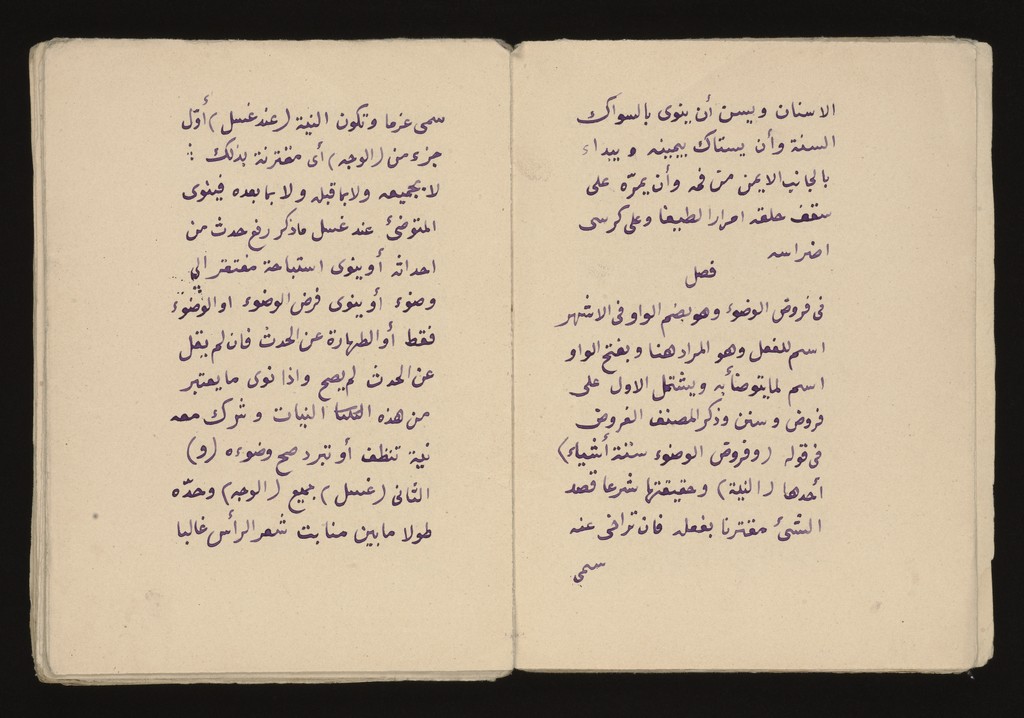 الاسنان ويسن أن ينوى بالسواك
السنة وأن يستاك بيمينه ويبداء
بالجانب الايمن من فمه وأن يمرّه على
سقف حلقه امرارا لطيفا وعلى كرسى
اضراسه
فصل
فى فروض الوضوء وهو بضم الواو فى الاشهر
اسم للفعل وهو المراد هنا وبفتح الواو
اسم لما يتوضأ به ويشتمل الاول على
فروض وسنن وذكر المصنف الفروض
فى قوله (وفروض الوضوء ستة أشياء)
أحدها (النية) وحقيقتها شرعا قصد
الشئ مقترنا بفعله فان تراخى عنه
سمي
سمى عزما وتكون النية (عند غسل) أوّل
جزء من (الوجه) أى مقترنة بذلك
لا بجميعه ولا بما قبله ولا بما بعده فينوى
المتوضئ عند غسل ما ذكر رفع حدث من
احداثه أو ينوى استباحة مفتقر الي
وضوء أو ينوى فرض الوضوء او الوضوء
فقط أو الطهارة عن الحدث فان لم يقل
عن الحدث لم يصح واذا نوى ما يعتبر
من هذه النيات وشرك معه
نية تنظف أو تبرد صح وضوءه (و)
الثانى (غسل) جميع (الوجه) وحدّه
طولا ما بين منابت شعر الرأس غالبا